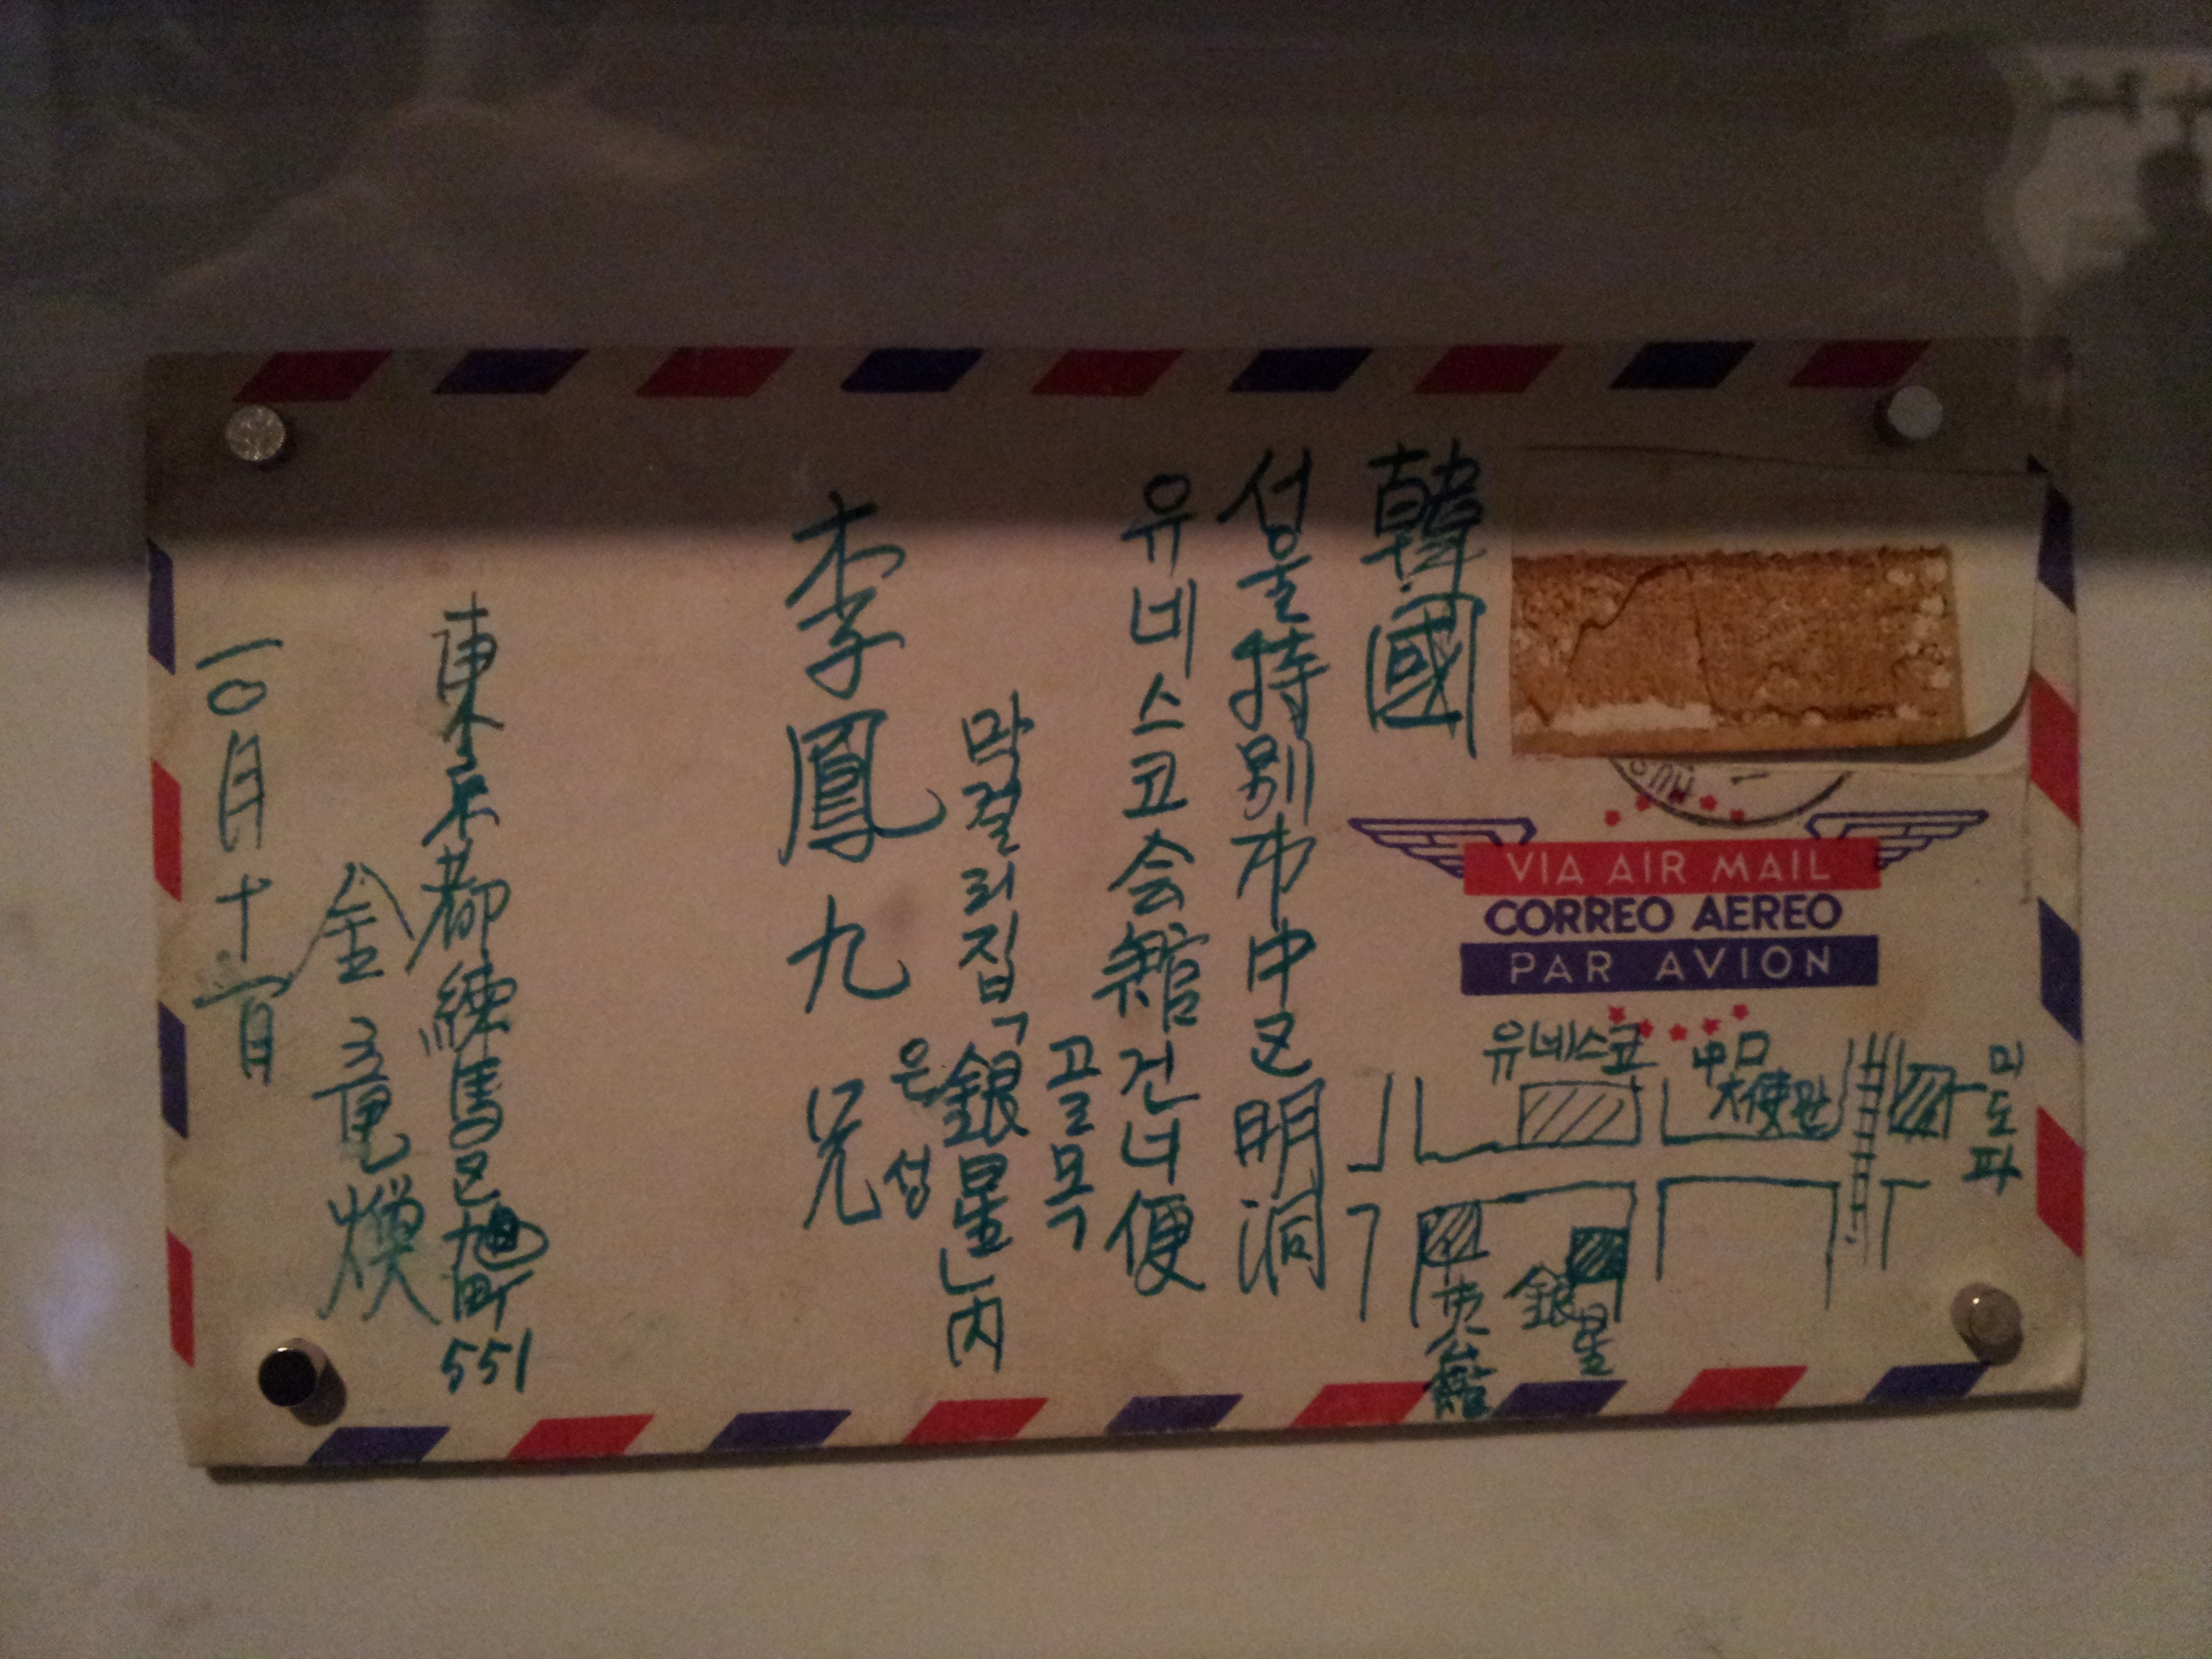 韓國
서울特別市中区明洞
유네스코会館건너便
골목
막걸리집「銀星」内
은성
李鳳九 兄
東京都練馬区旭町551
金
一〇月十一日
VIA AIR MAIL
CORREO AEREO
PAR AVION
유네스코
中口
大使館
미도파
銀星